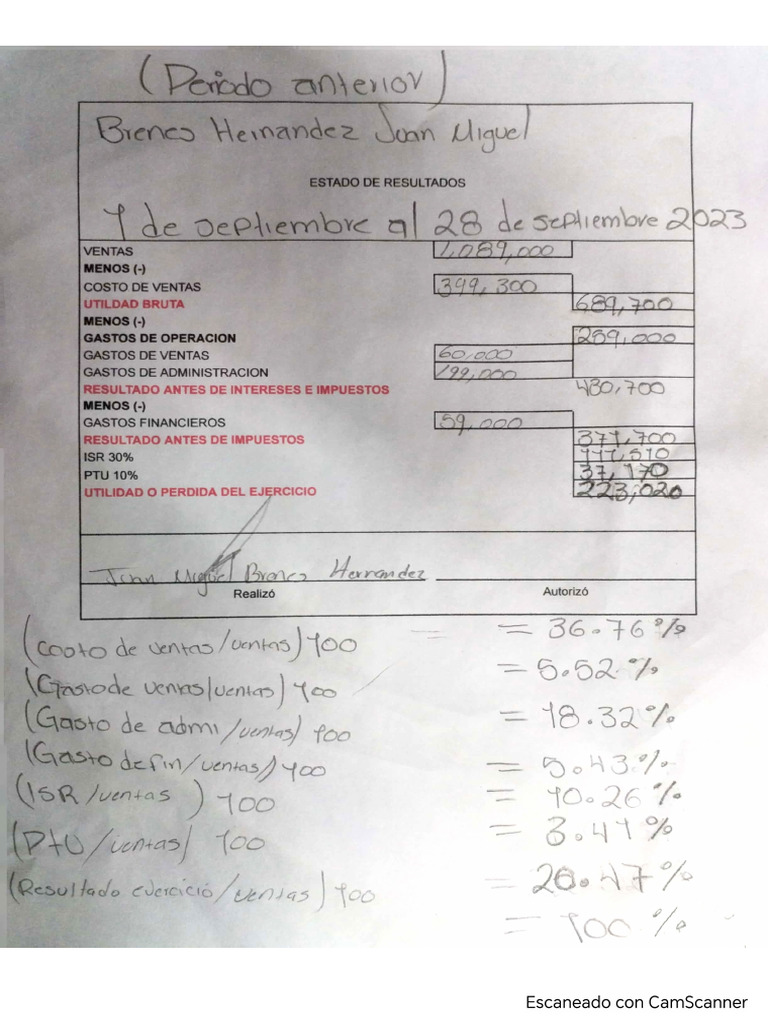 (Periodo anterior)
Briones Hernandez Juan Miguel
ESTADO DE RESULTADOS
1 de septiembre al 28 de septiembre 2023
VENTAS 1,089,000
MENOS (-)
COSTO DE VENTAS 399,300
UTILDAD BRUTA 689,700
MENOS (-)
GASTOS DE OPERACION 259,000
GASTOS DE VENTAS 60,000
GASTOS DE ADMINISTRACION 199,000
RESULTADO ANTES DE INTERESES E IMPUESTOS 430,700
MENOS (-)
GASTOS FINANCIEROS 59,000
RESULTADO ANTES DE IMPUESTOS 371,700
ISR 30% 111,510
PTU 10% 37,170
UTILIDAD O PERDIDA DEL EJERCICIO 223,020
Juan Miguel Briones Hernandez
Realizó Autorizó
(costo de ventas/ventas) 100 = 36.76%
(Gasto de ventas/ventas) 100 = 5.52%
(Gasto de admi/ventas) 100 = 18.32%
(Gasto de fin/ventas) 100 = 5.43%
(ISR/ventas) 100 = 10.26%
(PTU/ventas) 100 = 3.41%
(Resultado ejercicio/ventas) 100 = 20.47%
= 100%
Escaneado con CamScanner